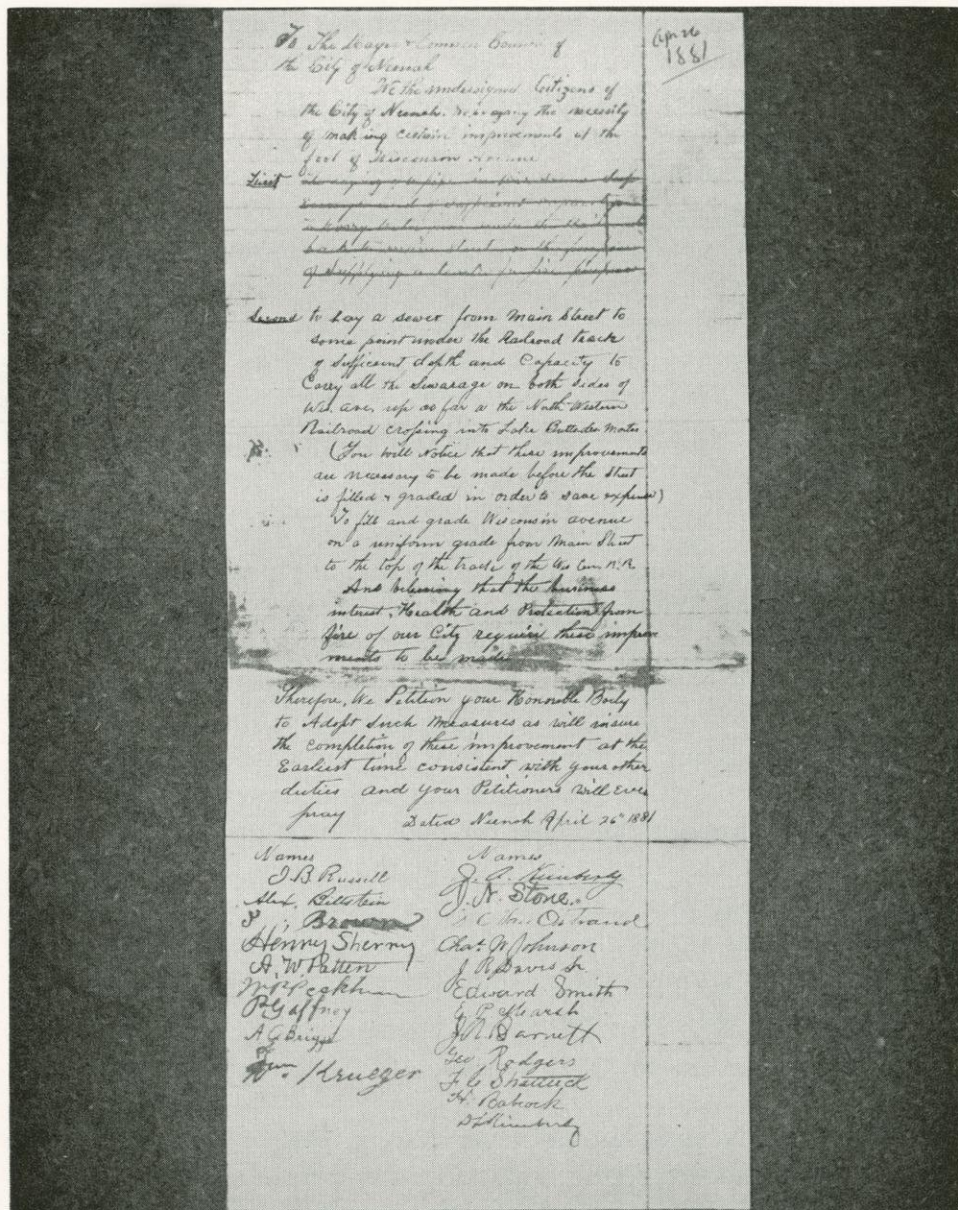 Apr 26
1881
To The Mayor & Common Council of
the City of Neenah
We the undersigned Citizens of
the City of Neenah. the necessity
of making certain improvements at the
foot of Wisconsin Avenue
First
of supplying water for fire purposes
Second to Lay a sewer from Main Street to
some point under the Railroad track
of Sufficient depth and Capacity to
Carry all the Sewarage on both Sides of
Wis. Ave, up as far a the North Western
Railroad crossing into Lake Butte des Mortes
(You will Notice that these improvements
are necessary to be made before the Street
is filled & graded in order to save expense)
To fill and grade Wisconsin avenue
on a uniform grade from Main Street
to the top of the track of the Wis Cen. R.R.
And believing that the business
interest, Health and Protection from
fire of our City require these improve
ments to be made
Therefore, We Petition your Honorable Body
to Adopt Such Measures as will insure
the completion of these improvement at the
Earliest time consistent with your other
duties and your Petitioners will Ever
pray Dated Neenah April 26" 1881
Names Names
J. B. Russell J. A. Kimberly
Alex. Billstein J. N. Stone.
Brown Ostrand
Henry Sherry Chas. W Johnson
A. W. Patten J. R. Davis Jr
Wm P. Peckham Edward Smith
P. Gaffney E. P. Marsh
A G Briggs J. R. Barnett
Wm. Krueger Geo Rodgers
F. C. Shattuck
H. Babcock
D L Kimberly